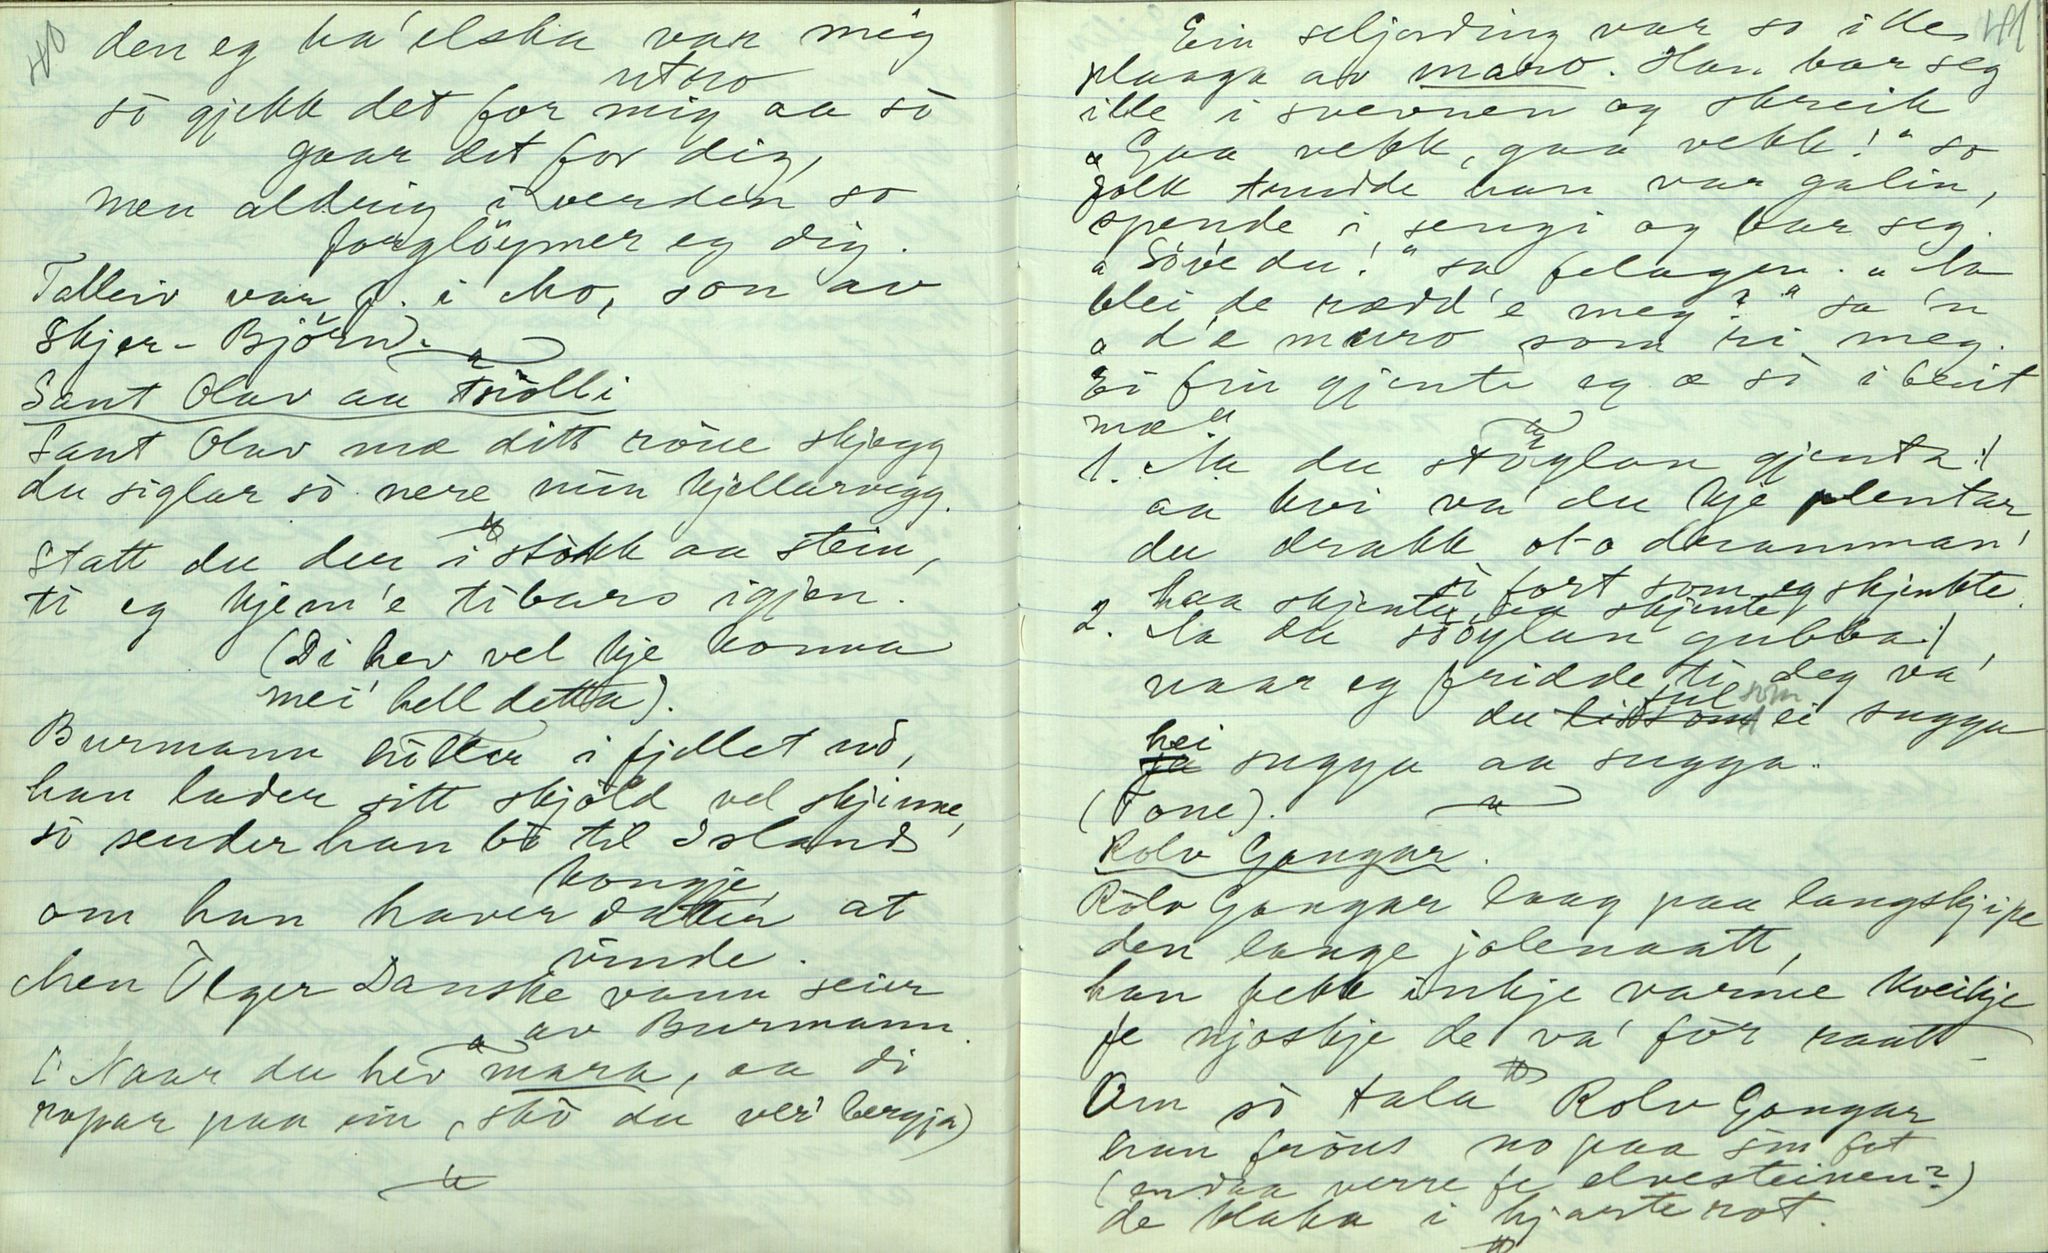 40
den eg ha' elska var mig
utro
so gjekk det for mig aa so
gaar det for dig,
men aldrig i verden so
forglöymer eg dig.
Talleiv var f. i Mo, son av
Skjer-Björn.
Sant Olav aa trolli
Sant Olav mæ ditt röue skjegg
du siglar so nere min kjellarvegg.
Statt du der i stokk aa stein,
ti eg kjem'e tibars igjen.
(Di hev vel kje konna
mei' hell detta).
Burmann hütter i fjellet ud,
han lader sitt skjöld vel skjinne,
so sender han bo til Island
kongje
om han haver datter at
vinde.
Men Olger Danske vann seier
av Burmann.
(Naar du hev mara, aa di
ropar paa ein, sko du ver' bergja)
41
Ein seljording var so ille
plaaga av maro. Han bar seg
ille i svevnen og skreik
"Gaa vekk, gaa vekk!" so
folk trudde han var galin,
spende i sengi og bar seg.
"Söve du!" sa felagen. "Aa
blei de rædd'e meg?" sa'n
"d'e muro som ri meg.
Ei fin gjente eg æ so i beit
mæ"
1. Aa du stöylan gjenta :/
aa kvi va' du kje plentar
du drakk ot-o dramman'
so fort som eg skjenkte.
haa skjente aa skjente
2. Aa du stöylan gubba :/
naar eg fridde ti deg va'
sul som
du ei sugga
hei sugga aa sugga.
(Tone).
Rolv Gangar.
Rolv Gangar laag paa langskjipe
den lange jolenaatt,
han fekk inkje varme kveikje
fe njoskje de va' för raatt
Om so tala Rolv Gangar
han fröus no paa sin fot
(endaa verre fe elvesteinen?)
de klaka i hjarterot.